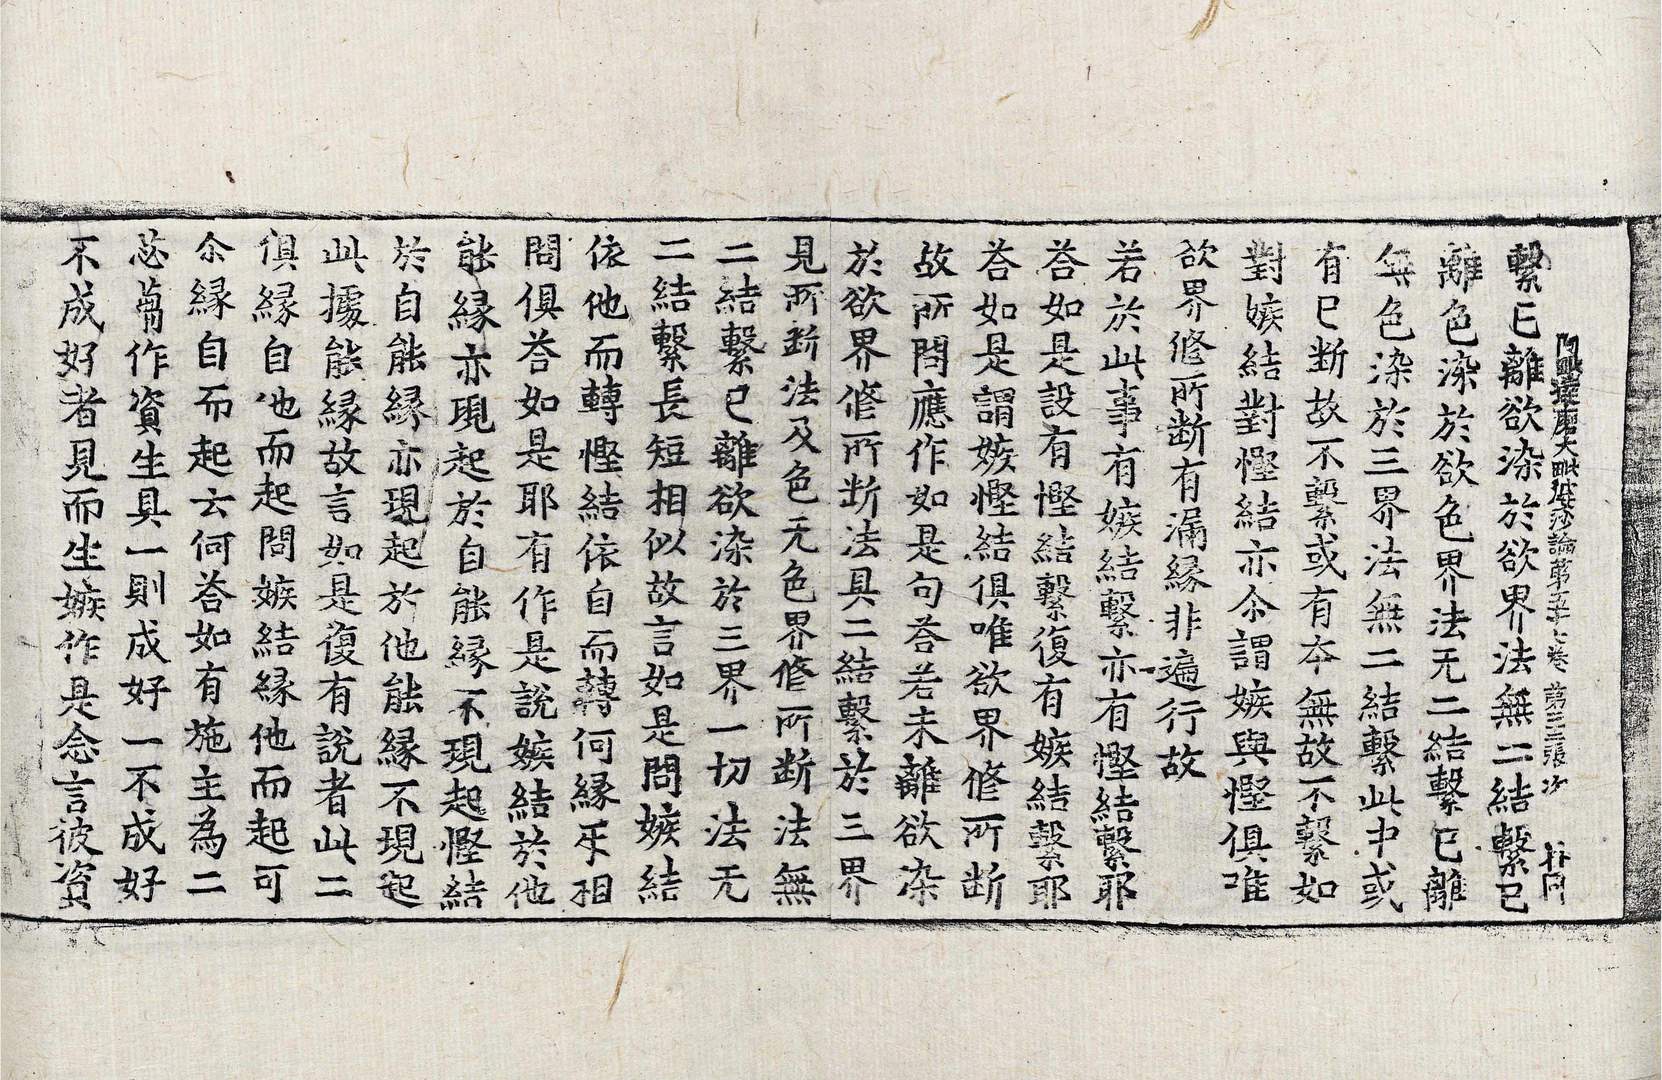 阿毗達磨大毗婆沙論第五十八卷　第三張　沙
繫已離欲染於欲界法無二結繫已
離色染於欲色界法无二結繫已離
無色染於三界法無二結繫此中或
有已斷故不繫或有本無故不繫如
對嫉結對慳結亦尒謂嫉與慳俱唯
欲界修所斷有漏緣非遍行故
若於此事有嫉結繫亦有慳結繫耶
荅如是設有慳結繫復有嫉結繫耶
荅如是謂嫉慳結俱唯欲界修所断
故所問應作如是句荅若未離欲染
於欲界修所断法具二結繫於三界
見所断法及色无色界修所断法無
二結繫已離欲染於三界一切法无
二結繫長短相似故言如是問嫉結
依他而轉慳結依自而轉何緣牙相
問俱荅如是耶有作是說嫉結於他
能緣亦現起於自能緣不現起慳結
於自能緣亦現起於他能緣不現起
此據能緣故言如是復有說者此二
俱緣自他而起問嫉結緣他而起可
尒緣自而起云何荅如有施主為二
苾蒭作資生具一則成好一不成好
不成好者見而生嫉作是念言彼資